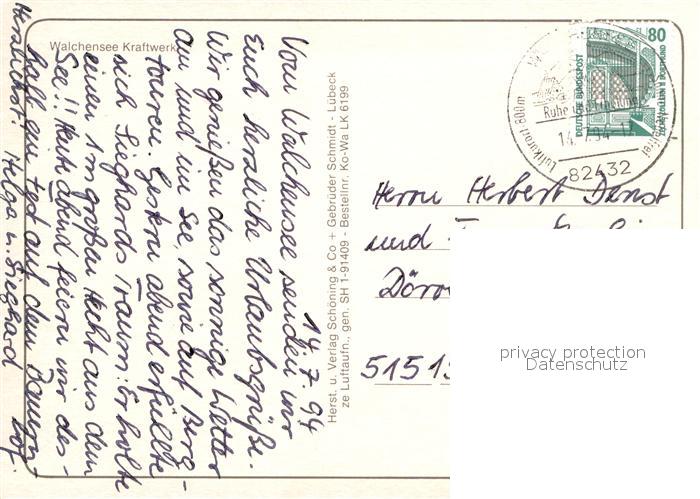 Walchensee Kraftwerk
14.7.94
Vom Walchensee senden wir
Euch herzliche Urlaubsgrüße.
Wir genießen das sonnige Wetter
am und im See, sowie auf Berg-
touren. Gestern abend erfüllte
sich Sieghards Traum: Er holte
einen 1m großen Hecht aus dem
See!! Heute abend feiern wir des-
halb ein Fest auf dem Bauern-
hof.
Herzlichst Helga u. Sieghard
Herst. u. Verlag Schöning & Co + Gebrüder Schmidt - Lübeck
ze Luftaufn., gen. SH 1-91409 - Bestellnr. Ko-Wa LK 6199
80
DEUTSCHE BUNDESPOST
Luftkurort 800m
Ruhe
14.7.94-17
82432
Herrn Herbert Ernst
und
5151
privacy protection
Datenschutz